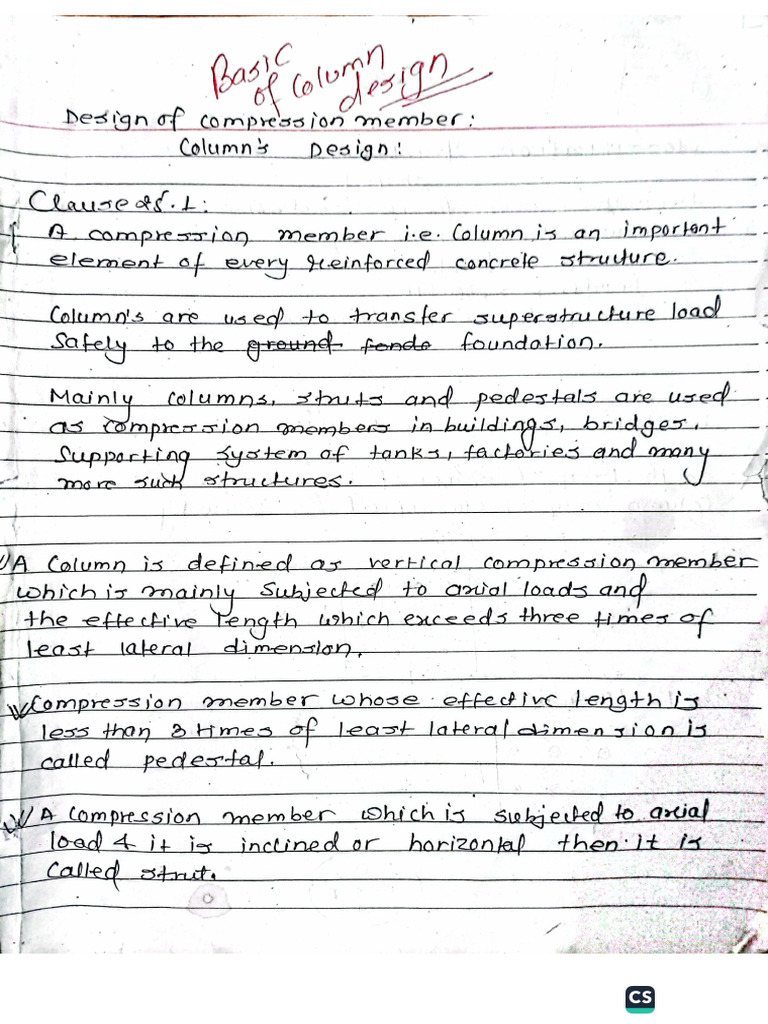 Basic
of Column
design
Design of compression member:
Column's Design:
Clause 25.1:
A compression member i.e. Column is an important
element of every reinforced concrete structure.
Column's are used to transfer superstructure load
Safely to the ground foundation.
Mainly columns, struts and pedestals are used
as compression members in buildings, bridges,
Supporting system of tanks, factories and many
more such structures.
A Column is defined as vertical compression member
which is mainly Subjected to axial loads and
the effective length which exceeds three times of
least lateral dimension.
Compression member whose effective length is
less than 3 times of least lateral dimension is
called pedestal.
A compression member which is subjected to axial
load & it is inclined or horizontal then it is
Called strut.
CS